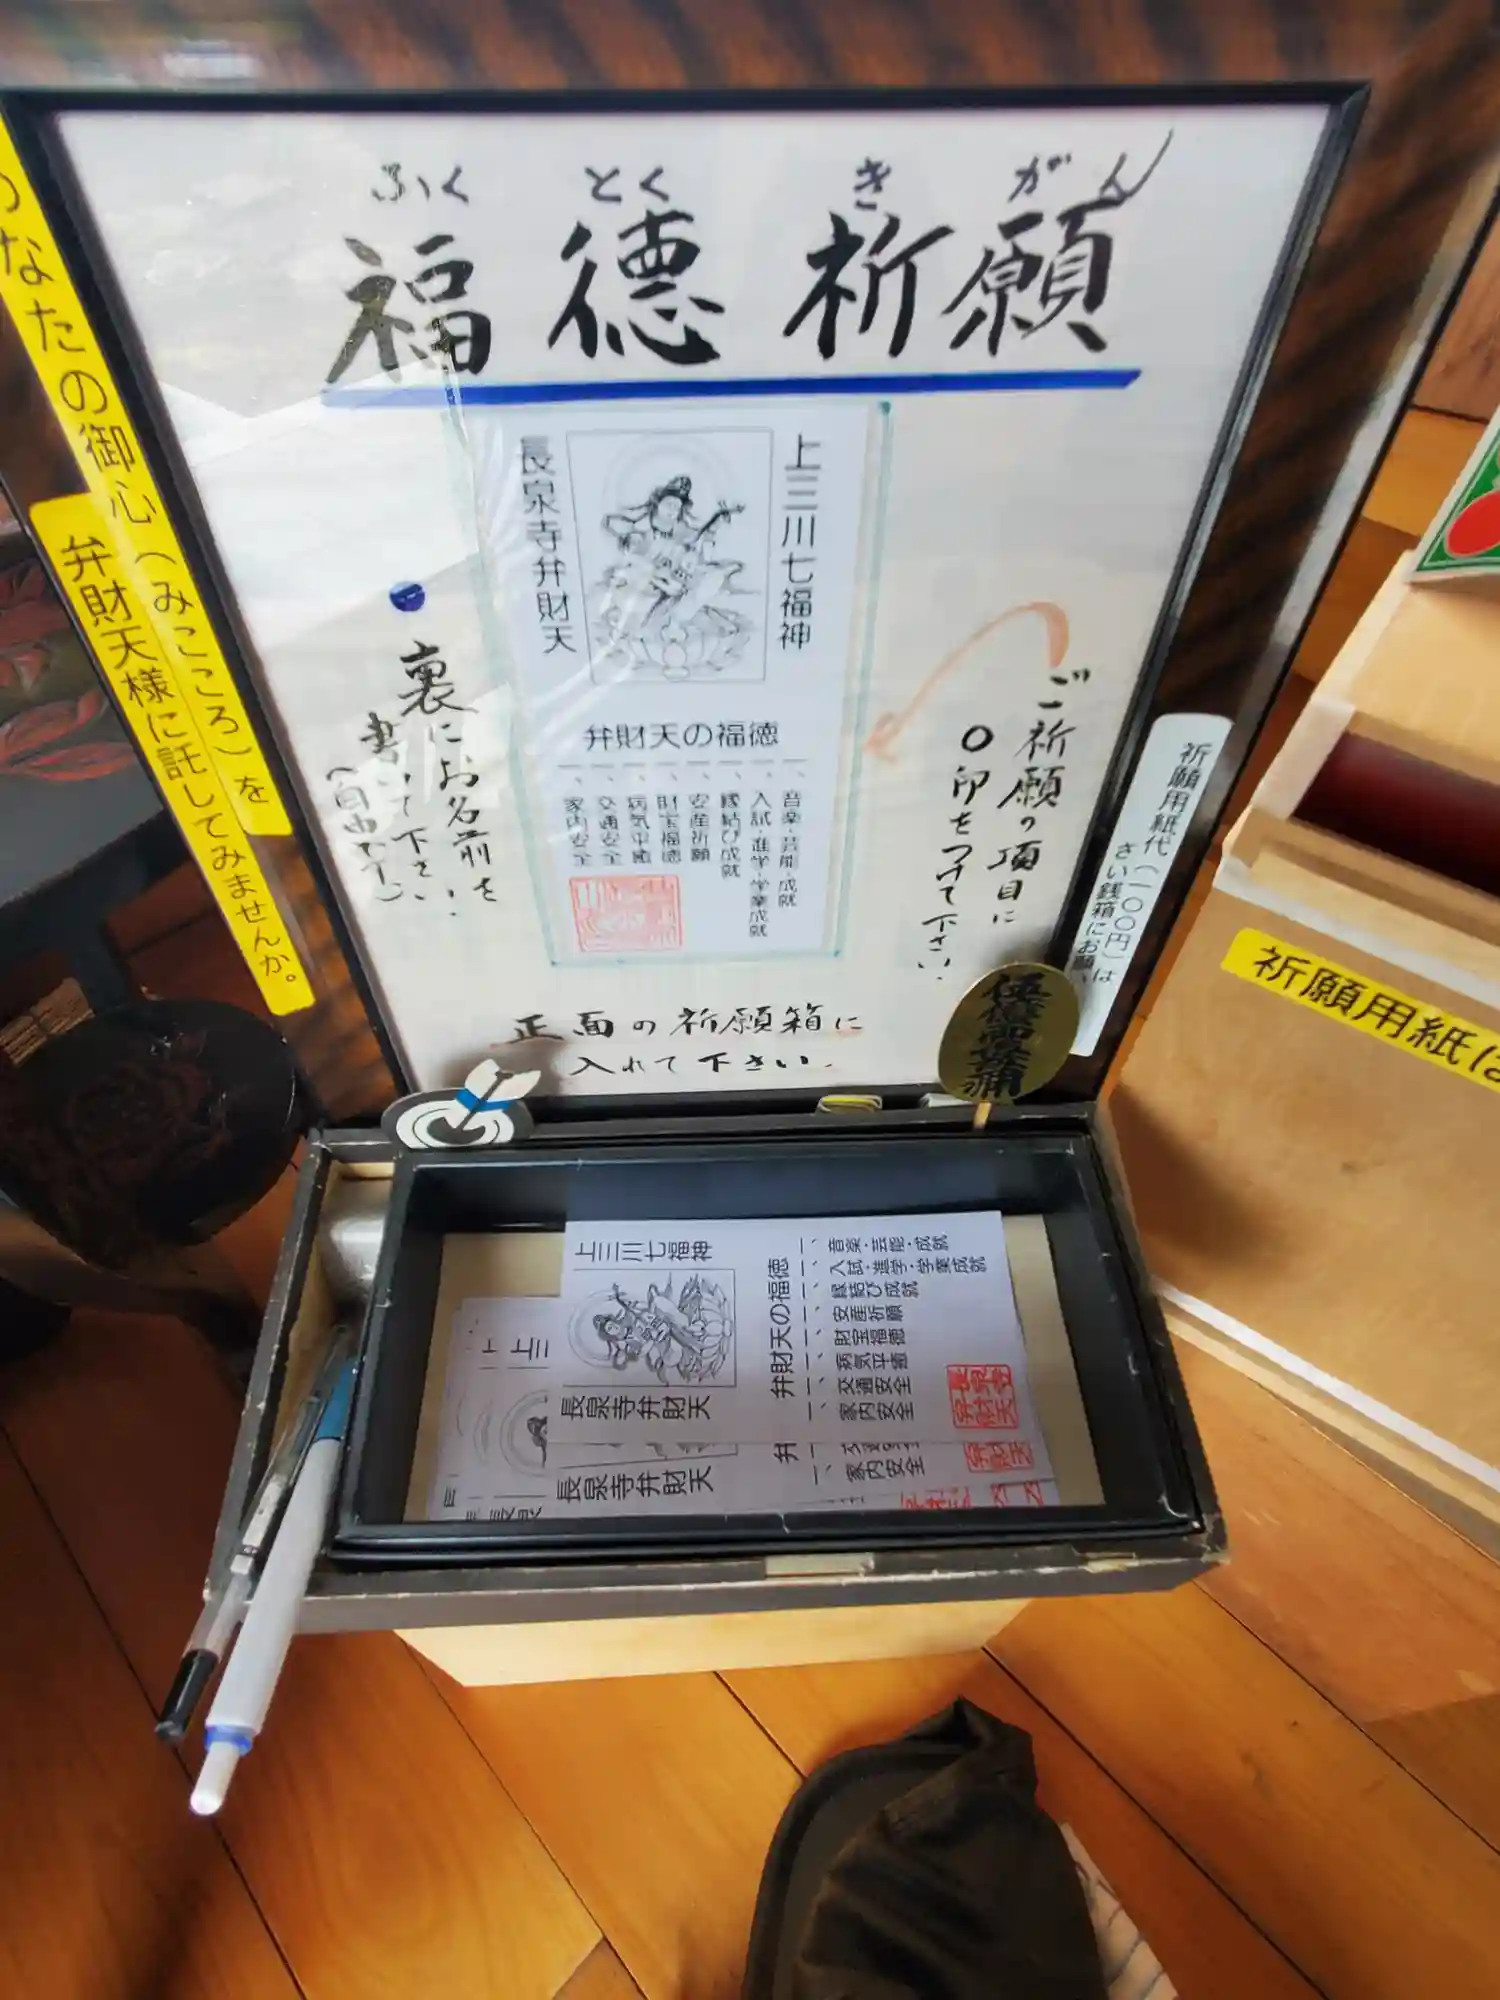 ふくとくきがん
福徳祈願
上三川七福神
長泉寺弁財天
弁財天の福徳
一、音楽・芸能・成就
一、入試・進学・学業成就
一、縁結び成就
一、安産祈願
一、財宝福徳
一、病気平癒
一、交通安全
一、家内安全
ご祈願の項目に
〇印をつけて下さい。
裏にお名前を
書いて下さい。
正面の祈願箱に
入れて下さい。
なたの御心(みこころ)を
弁財天様に託してみませんか。
祈願用紙代(一〇〇円)は
さい銭箱にお願
祈願用紙は
上三川七福神
長泉寺弁財天
弁財天の福徳
一、音楽・芸能・成就
一、入試・進学・学業成就
一、縁結び成就
一、安産祈願
一、財宝福徳
一、病気平癒
一、交通安全
一、家内安全
長泉寺弁財天
弁
一、家内安全
上三